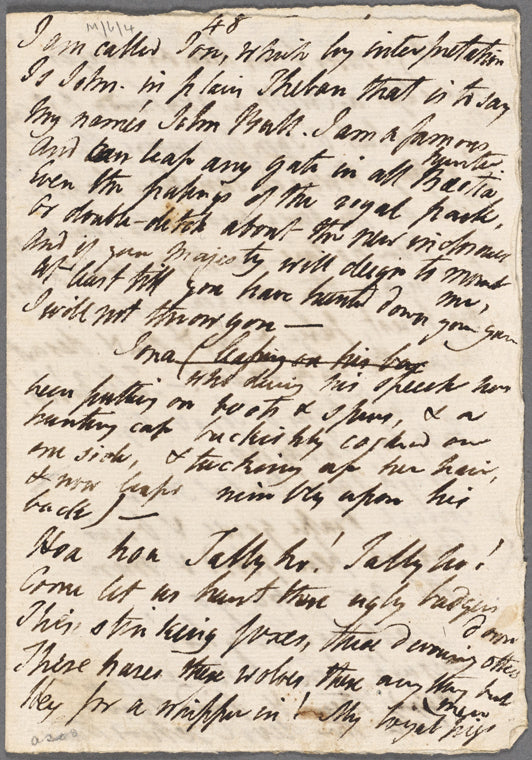 M/6/4
48
I am called Ion, which by interpretation
Is John. in plain Theban that is to say
My name's John Bull. I am a famous
hunter
And can leap any gate in all Bœotia
Even the palings of the royal park,
Or double-ditch about the new inclosures
And if your Majesty will deign to mount
me,
At least till you have hunted down your game
I will not throw you —
Iona (leaping on his back
who during his speech has
been putting on boots & spurs, & a
hunting cap buckishly cocked on
one side, & tucking up her hair,
& now leaps nimbly upon his
back) —
Hoa hoa Tally ho! Tally ho!
Come let us hunt these ugly badgers
down
These stinking foxes, these devouring otters
These hares these wolves these any thing but
men
Hey for a whipper in! My loyal pigs